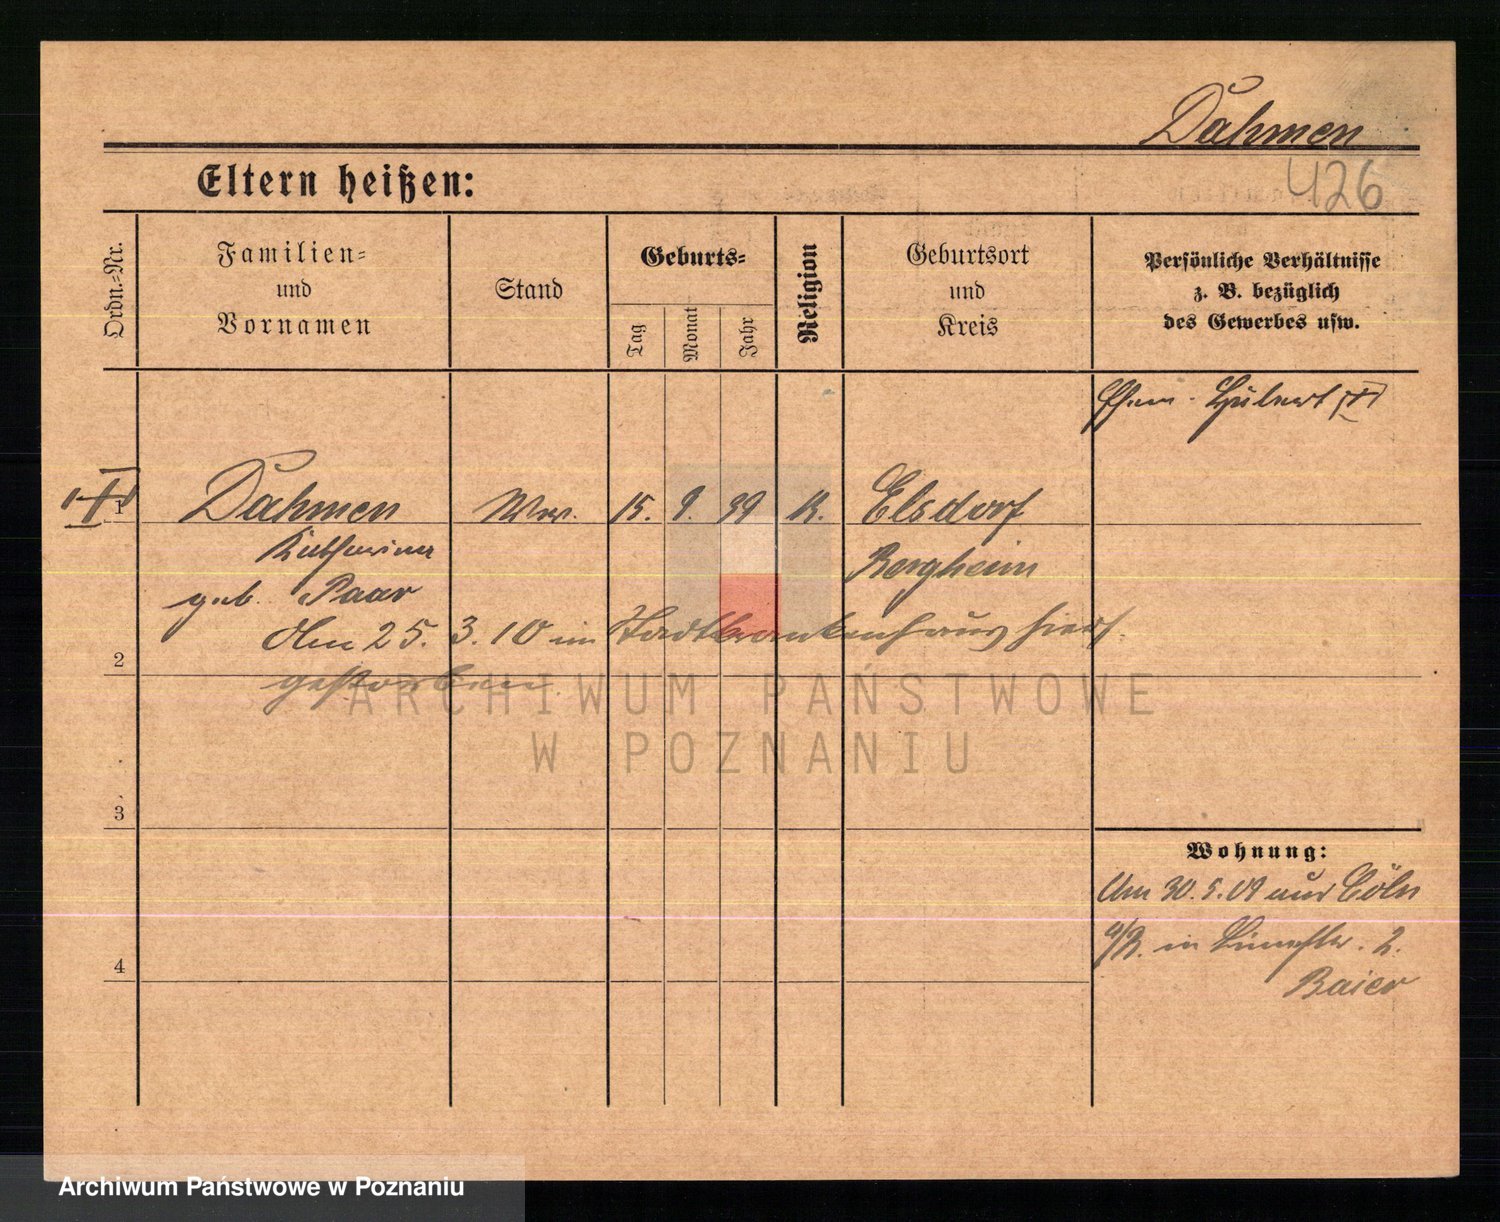 Dahmen
426
Eltern heißen:
Ordn.-Nr.
Familien-
und
Vornamen
Stand
Geburts-
Tag
Monat
Jahr
Religion
Geburtsort
und
Kreis
Persönliche Verhältnisse
z. B. bezüglich
des Gewerbes usw.
Ehem. Hubert
1
Dahmen
Wwe.
15. 9. 39
K.
Elsdorf
Katharina
Bergheim
geb. Paar
Am 25. 3. 10 im Stadtkrankenhaus hiers.
2
gestorben.
ARCHIWUM PAŃSTWOWE
W POZNANIU
3
Wohnung:
Am 30. 5. 09 aus Cöln
4
a/R. in 2.
Baier
Archiwum Państwowe w Poznaniu